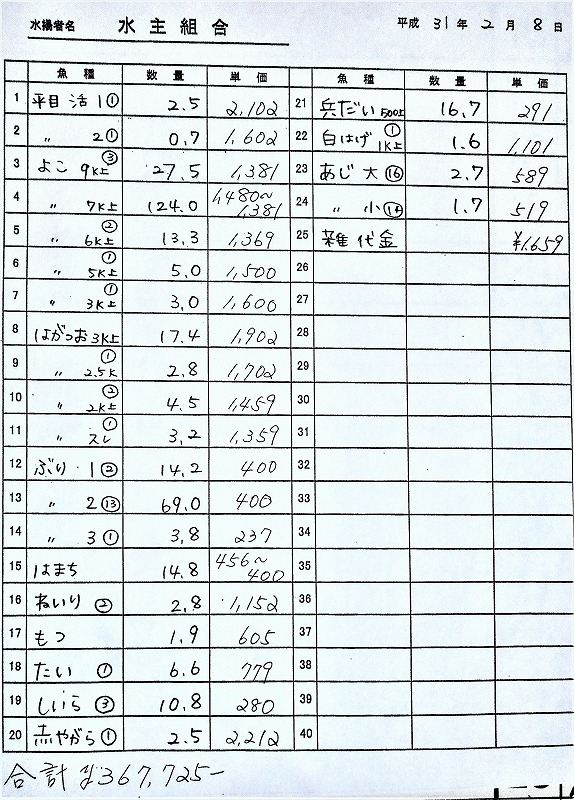 水揚者名 水主組合 平成 31年 2月 8日
魚種 数量 単価
1 平目 活1① 2.5 2,102
2 〃 2① 0.7 1,602
3 よこ 9K上③ 27.5 1,381
4 〃 7K上 124.0 1,480〜1,381
5 〃 6K上② 13.3 1,369
6 〃 5K上① 5.0 1,500
7 〃 3K上① 3.0 1,600
8 はがつお 3K上 17.4 1,902
9 〃 2.5K① 2.8 1,702
10 〃 2K上② 4.5 1,459
11 〃 スレ① 3.2 1,359
12 ぶり 1② 14.2 400
13 〃 2⑬ 69.0 400
14 〃 3① 3.8 237
15 はまち 14.8 456〜400
16 ねいり② 2.8 1,152
17 もつ 1.9 605
18 たい① 6.6 779
19 しいら③ 10.8 280
20 赤やがら① 2.5 2,212
魚種 数量 単価
21 兵だい 500上 16.7 291
22 白はげ 1K上① 1.6 1,101
23 あじ 大⑯ 2.7 589
24 〃 小⑭ 1.7 519
25 雑代金 ¥1,659
26
27
28
29
30
31
32
33
34
35
36
37
38
39
40
合計 ¥367,725-